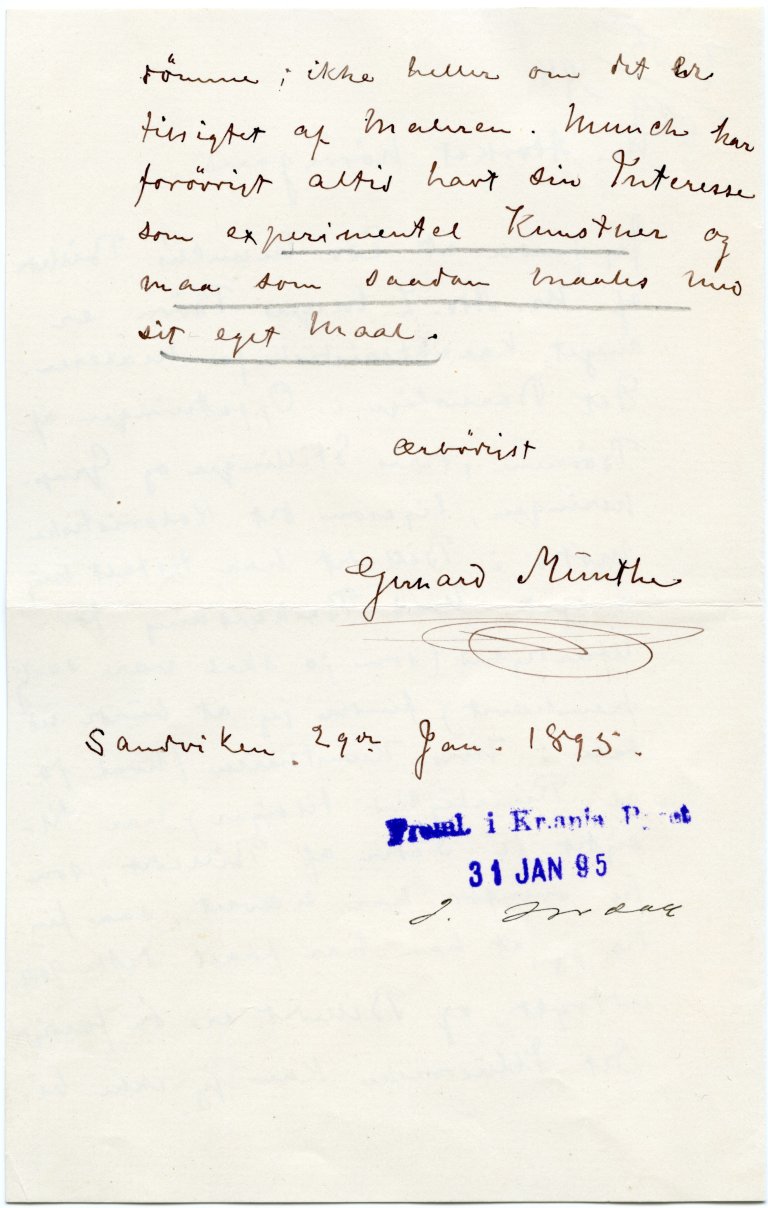 dömme; ikke heller om det er
tilsigtet af Maleren. Munch har
forövrigt altid havt sin Interesse
som experimentel Kunstner og
maa som saadan maales med
sit eget Maal.
Ærbödigst
Gerhard Munthe
Sandviken. 29de Jan. 1895.
Freml. i Kr.ania Byret
31 JAN 95